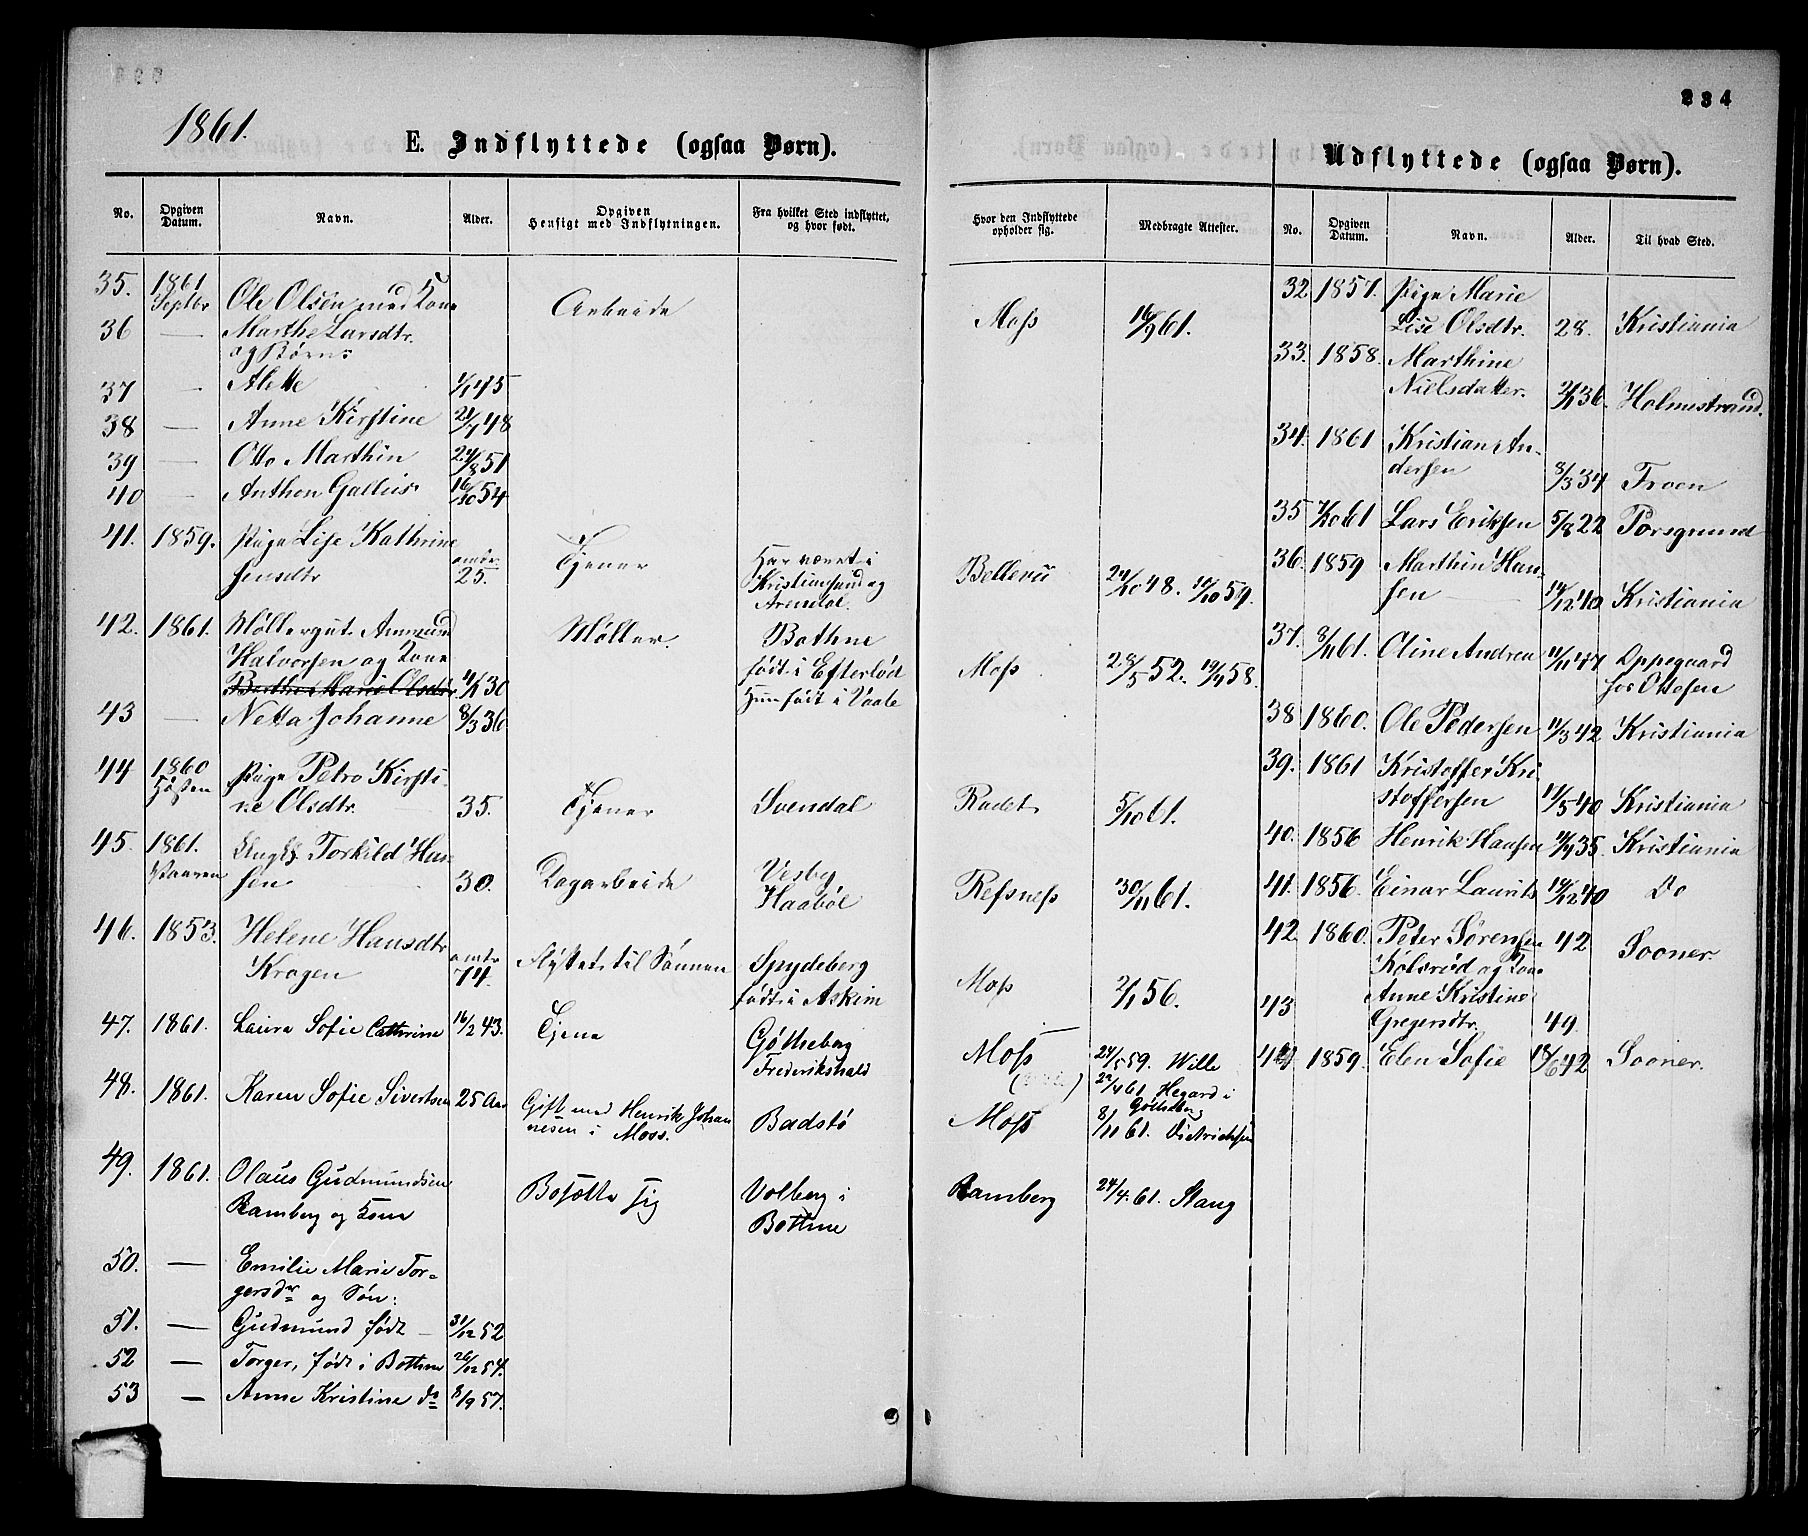 234
1861.
E. Indflyttede (ogsaa Børn).
No.
Opgiven Datum.
Navn.
Alder.
Opgiven Hensigt med Indflytningen.
Fra hvilket Sted indflyttet, og hvor født.
Hvor den Indflyttede opholder sig.
Medbragte Attester.
35. 1861 Septbr Ole Olsen med Kone Arbeide Moss 16/9 61.
36 — Marthe Larsdtr.
og Børn
37 — Alette 1/1 45
38 — Anne Kirstine 21/7 48
39 — Otto Marthin 24/8 51
40 — Anthon Gallius 16/10 54
41. 1859. Pige Lise Kathrine omtr. Tjener Har været i Bellevü 24/10 48. 14/10 59.
sensdtr 25. Kristiansund og
Arendal.
42. 1861. Møllergut Ammund Møller. Bothne
Halvorsen og Kone født i Efterlød Moss 28/5 52. 19/4 58.
Berthe Marie Olsdtr 4/1 30 Hun født i Vaale
43 — Netta Johanne 8/3 36
44 1860 Høsten Pige Petro Kirsti-
ne Olsdtr. 35. Tjener Svendal Radet 5/10 61.
45. 1861. Vaaren Ungk. Torkild Han-
sen 30. Dagarbeide Vesby Haabøl Refsnes 30/11 61.
46. 1853. Helene Hansdtr omtr
Krogen 74. Flyttet til Sønnen Spydeberg Moss 2/1 56.
født i Askim
47. 1861. Laura Sofie Cathrine 16/2 43. Tjene Gøtheberg Moss 24/5 59. Wille
Frederikshald 22/4 61 Hegard i
Gøtheberg
48. 1861. Karen Sofie Sivertsen 25 Aar Gift med Henrik Johan- Badstø Moss 8/11 61. Dietrichsen
nesen i Moss.
49. 1861. Olaus Gudmundsen Bosætte sig Volberg i Ramberg 24/4. 61. Stang
Ramberg og Kone Bothne
50. — Emilie Marie Tor-
gersdr og Søn:
51. — Gudmund født — 31/12 52
52 — Torger, født i Bothne 26/12 54.
53 — Anne Kristine do 8/9 57.
Udflyttede (ogsaa Børn).
No.
Opgiven Datum.
Navn.
Alder.
Til hvad Sted.
32 1857. Pige Marie
Lise Olsdtr. 28. Kristiania
33. 1858. Marthine
Nielsdatter. 2/1 36. Holmestrand.
34. 1861 Kristian An-
dersen 8/3 34 Froen
35 7/10 61 Lars Eriksen 5/8 22 Porsgrund
36. 1859 Marthin Han-
sen 14/12 40 Kristiania
37. 8/11 61. Oline Andrea 11/11 47 Oppegaard
hos Ottosen
38 1860. Ole Pedersen 11/3 42 Kristiania
39. 1861 Kristoffer Kri-
stoffersen 14/5 40 Kristiania
40. 1856 Henrik Hansen 11/4 35. Kristiania
41. 1856. Einar Laurits 14/12 40 Do
42 1860. Peter Sørensen 42 Sooner.
Kolsrød og Kone
43 Anne Kristine
Gregersdtr 49.
44 1859. Elen Sofie 18/6 42 Sooner.